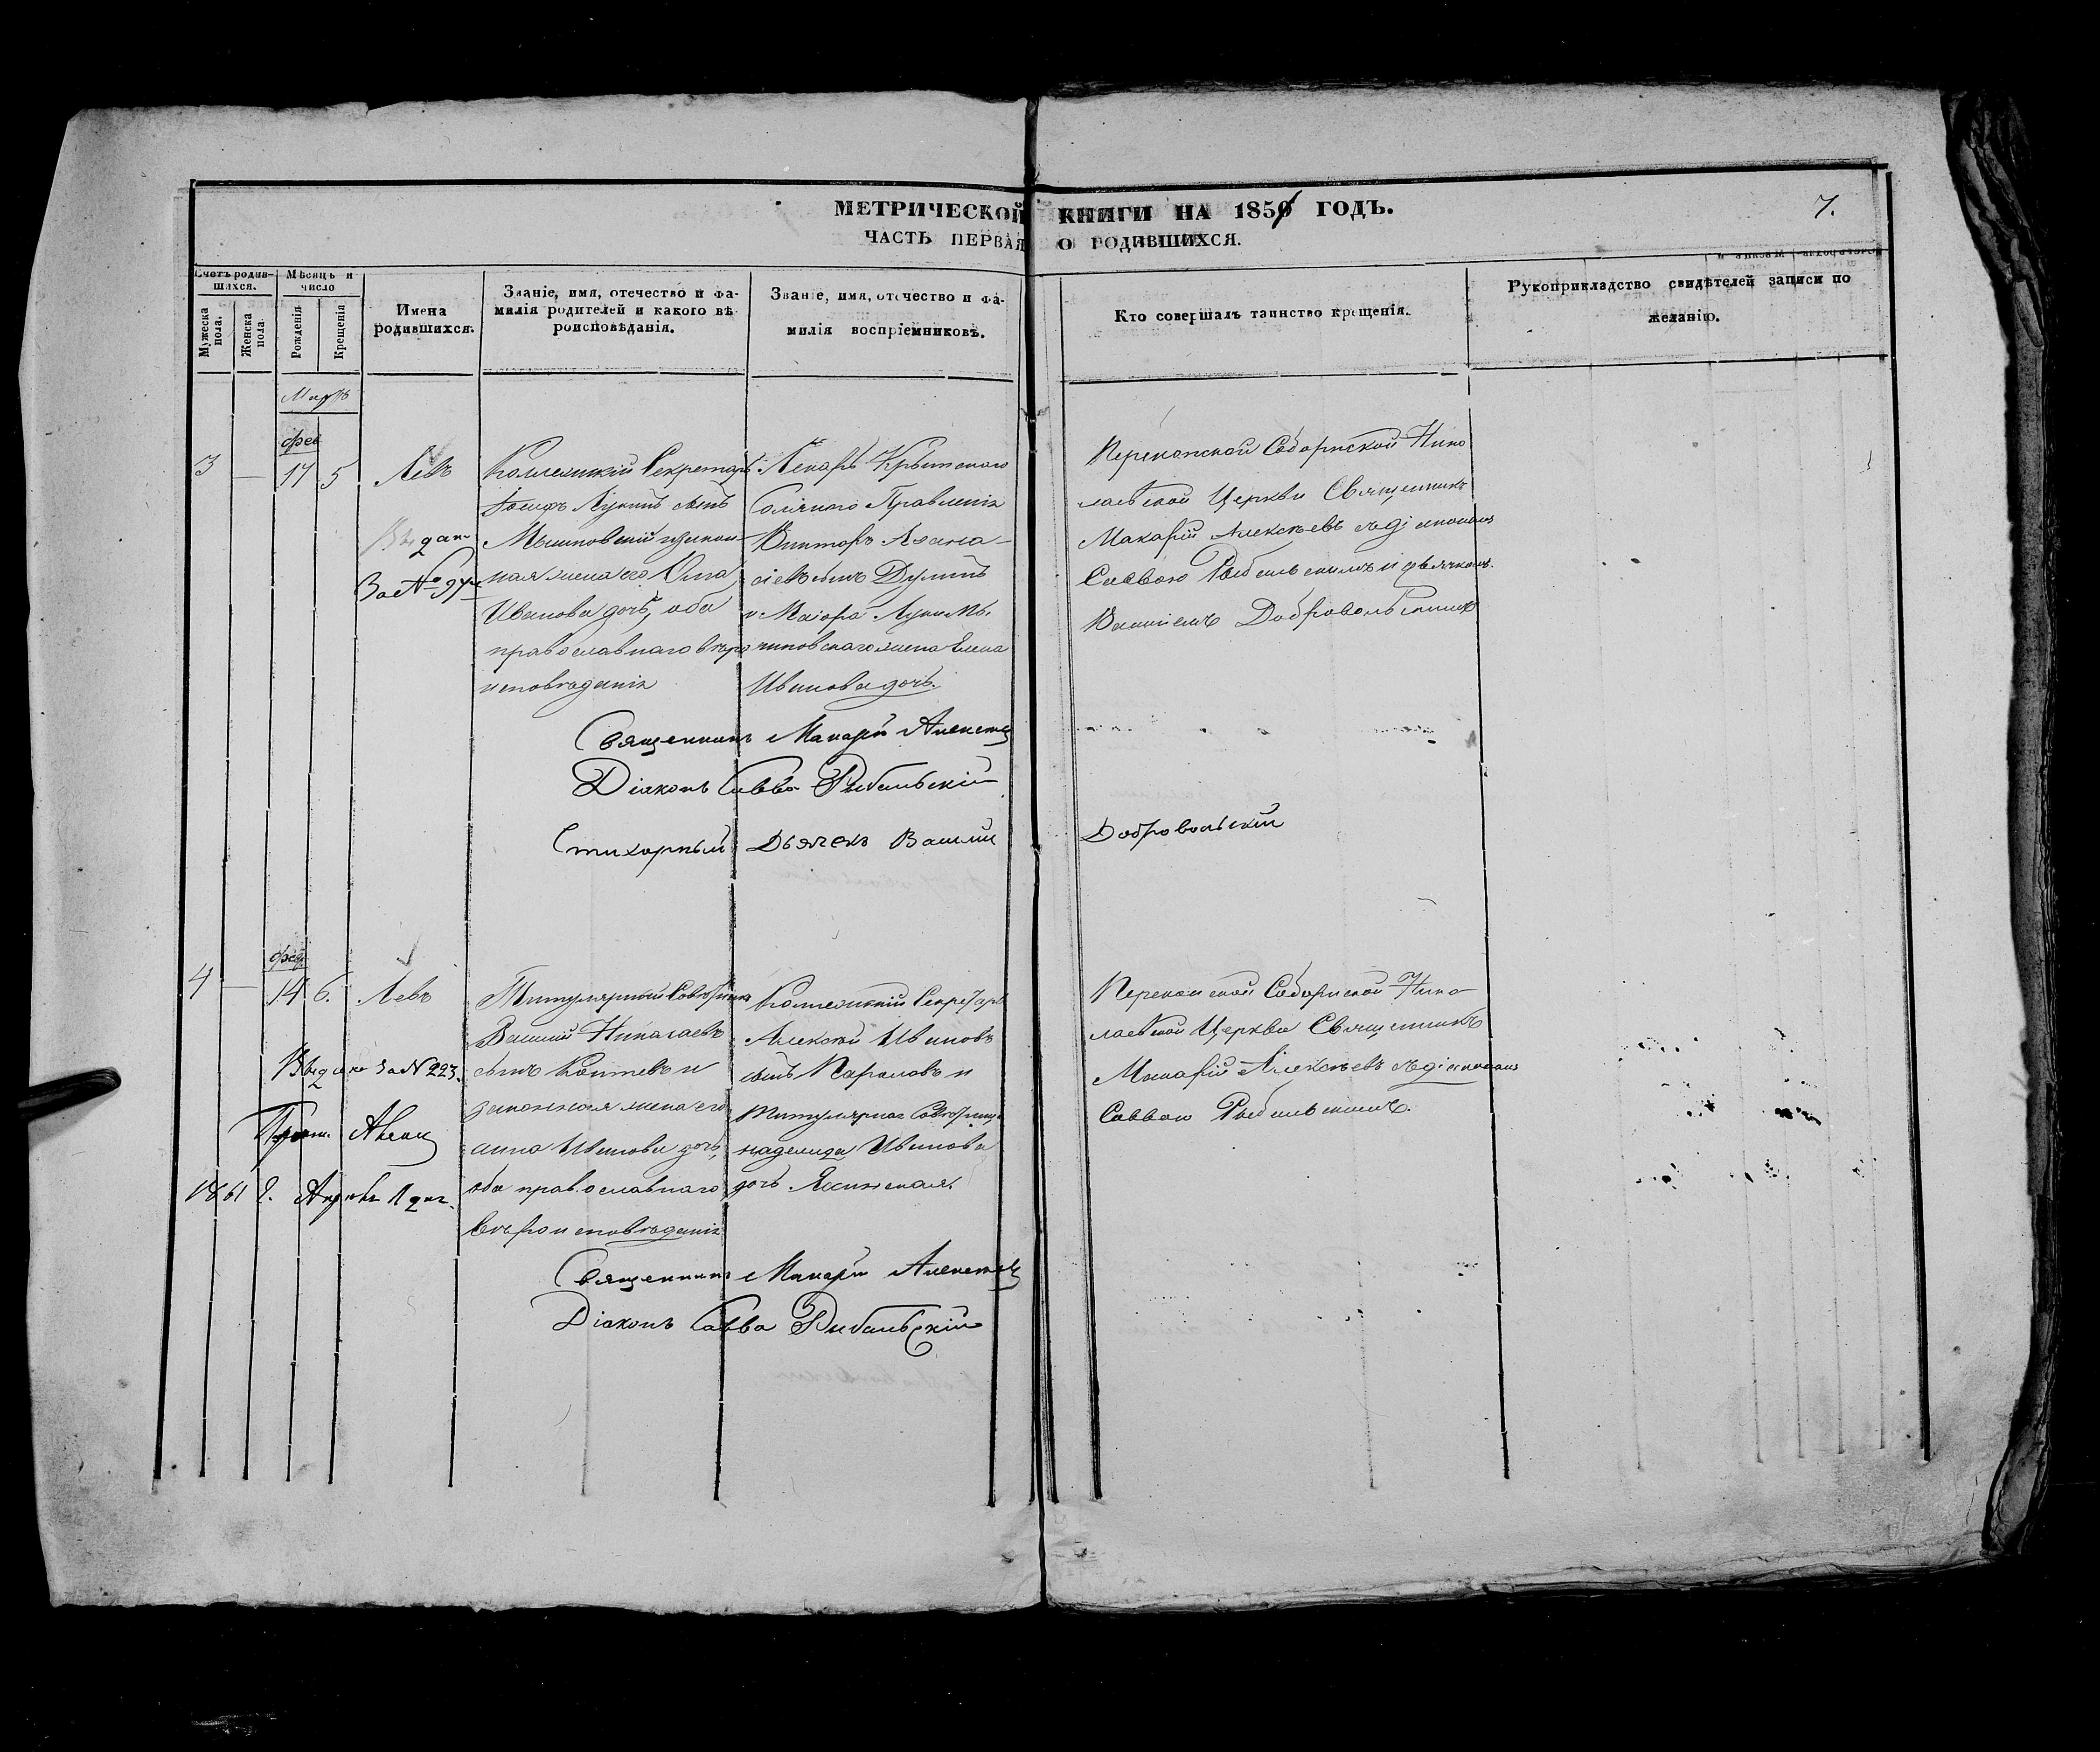 МЕТРИЧЕСКОЙ КНИГИ НА 1850 ГОДЪ.
7.
ЧАСТЬ ПЕРВАЯ О РОДИВШИХСЯ.
Счетъ родив-
шихся.
Мужеска пола.
Женска пола
Мѣсяцъ и
число
Рожденія
Крещенія
Имена
родившихся.
Званіе, имя, отечество и фа-
милія родителей и какого вѣ-
роисповѣданія.
Званіе, имя, отечество и фа-
милія воспріемниковъ.
Кто совершалъ таинство крещенія.
Рукоприкладство свидѣтелей записи по
желанію.
Мартъ
фев
3 — 17 5 Левъ
Коллежскій Секретарь
Іосифъ Лукинъ сынъ
законная жена его
Иванова дочь, оба
православнаго вѣро
исповѣданія
Выдано
За №
Лекарь Крымскаго
Солянаго Правленія
Викторъ Афана-
сіевъ сынъ
и Маіора жена Елена
Иванова дочь.
Перекопской Соборнской Нико
лаевской Церкви Священникъ
Макарій Алексѣевъ съ діакономъ
Саввою Рыбальскимъ и дьячкомъ
Василіемъ Добровольскимъ
Священникъ Макарій Алексѣевъ
Діаконъ Савва Рыбальскій
Стихарный Дьячекъ Василій Добровольскій
фев
4 — 14 6. Левъ
Выдано за № 223.
1861 г. Апрѣля 1 дня.
Титулярный Совѣтникъ
Василій Николаевъ
сынъ Коптевъ и
законная жена его
Анна Иванова дочь,
оба православнаго
вѣроисповѣданія
Коллежскій Секретарь
Алексѣй Ивановъ
сынъ и
Титулярная Совѣтница
Надежда Иванова
дочь
Перекопской Соборнской Нико-
лаевской Церкви Священникъ
Макарій Алексѣевъ съ діакономъ
Саввою Рыбальскимъ.
Священникъ Макарій Алексѣевъ
Діаконъ Савва Рыбальскій